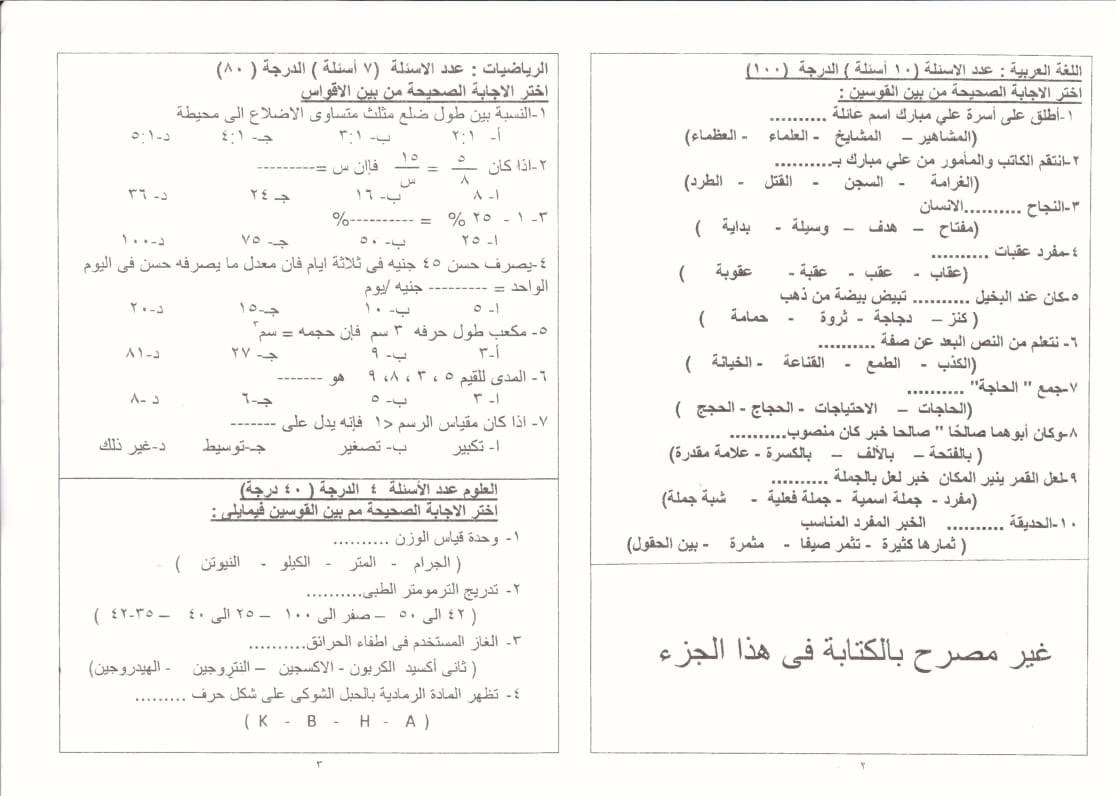 اللغة العربية : عدد الاسئلة (١٠ أسئلة ) الدرجة (١٠٠)
اختر الاجابة الصحيحة من بين القوسين :
١-أطلق على أسرة علي مبارك اسم عائلة ..........
(المشاهير – المشايخ - العلماء - العظماء)
٢-انتقم الكاتب والمأمور من علي مبارك بـ..........
(الغرامة - السجن - القتل - الطرد)
٣-النجاح ..........الانسان
(مفتاح – هدف – وسيلة - بداية )
٤-مفرد عقبات ..........
(عقاب - عقب - عقبة - عقوبة )
٥-كان عند البخيل .......... تبيض بيضة من ذهب
( كنز – دجاجة - ثروة - حمامة )
٦- نتعلم من النص البعد عن صفة ..........
(الكذب - الطمع - القناعة - الخيانة )
٧-جمع " الحاجة" ..........
(الحاجات – الاحتياجات - الحجاج - الحجج )
٨-وكان أبوهما صالحًا " صالحا خبر كان منصوب..........
( بالفتحة – بالألف – بالكسرة - علامة مقدرة)
٩-لعل القمر ينير المكان خبر لعل بالجملة ..........
(مفرد - جملة اسمية - جملة فعلية - شبة جملة)
١٠-الحديقة .......... الخبر المفرد المناسب
( ثمارها كثيرة - تثمر صيفا - مثمرة - بين الحقول)
غير مصرح بالكتابة فى هذا الجزء
٢
الرياضيات : عدد الاسئلة (٧ أسئلة ) الدرجة ( ٨٠)
اختر الاجابة الصحيحة من بين الاقواس
١-النسبة بين طول ضلع مثلث متساوى الاضلاع الى محيطة
أ- ٢:١ ب- ٣:١ جـ- ٤:١ د-٥:١
٢-اذا كان ٥/٨ = ١٥/س فاإن س =---------
ا- ٨ ب- ١٦ جـ ٢٤ د- ٣٦
٣- ١ - ٢٥ % = ----------%
ا- ٢٥ ب- ٥٠ جـ- ٧٥ د-١٠٠
٤-يصرف حسن ٤٥ جنيه فى ثلاثة ايام فان معدل ما يصرفه حسن فى اليوم
الواحد = --------- جنيه /يوم
ا- ٥ ب- ١٠ جـ-١٥ د-٢٠
٥- مكعب طول حرفه ٣ سم فإن حجمه = سم٣
أ-٣ ب- ٩ جـ- ٢٧ د-٨١
٦- المدى للقيم ٥ ، ٣ ، ٨، ٩ هو -------
ا- ٣ ب- ٥ جـ-٦ د -٨
٧- اذا كان مقياس الرسم <١ فإنه يدل على -------
ا- تكبير ب- تصغير جـ-توسيط د-غير ذلك
العلوم عدد الأسئلة ٤ الدرجة ( ٤٠ درجة)
اختر الاجابة الصحيحة مم بين القوسين فيمايلى :
١- وحدة قياس الوزن ..........
( الجرام - المتر - الكيلو - النيوتن )
٢- تدريج الترمومتر الطبى..........
( ٤٢ الى ٥٠ – صفر الى ١٠٠ – ٢٥ الى ٤٠ – ٣٥-٤٢ )
٣- الغاز المستخدم فى اطفاء الحرائق..........
( ثانى أكسيد الكربون - الاكسجين – النتروجين - الهيدروجين)
٤- تظهر المادة الرمادية بالحبل الشوكى على شكل حرف .........
( K - B - H - A )
٣